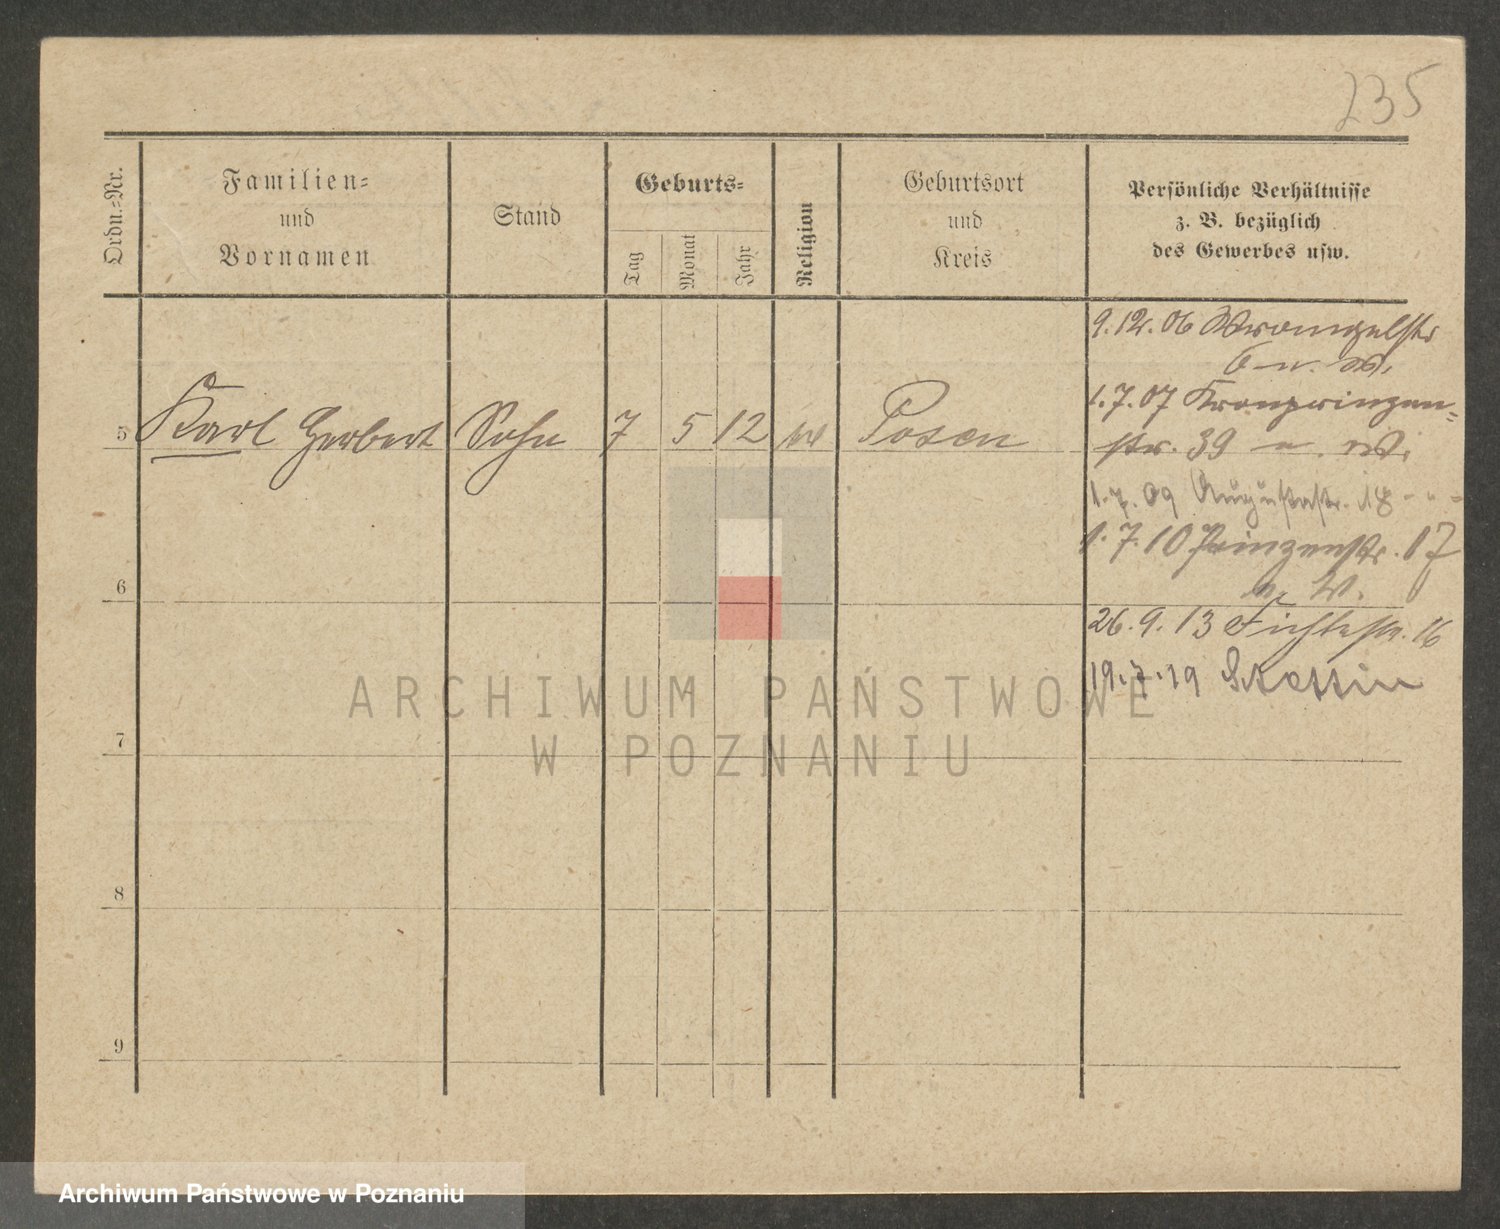 235
Ordn.-Nr.
Familien-
und
Vornamen
Stand
Geburts-
Tag
Monat
Jahr
Religion
Geburtsort
und
Kreis
Persönliche Verhältnisse
z. B. bezüglich
des Gewerbes usw.
9.12.06 Wrangelstr
6
1.7.07 Kronprinzen-
str. 39
5 Karl Herbert Sohn 7 5 12 Posen
1.7.09 Augustastr. 18 - " -
1.7.10 Prinzenstr. 17
6
26.9.13 Fichtestr. 16
19.7.19 Stettin
ARCHIWUM PAŃSTWOWE
W POZNANIU
7
8
9
Archiwum Państwowe w Poznaniu